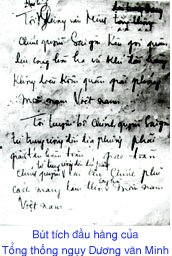 Tôi
văn Minh tổng thống
Chính quyền Sài gòn kêu gọi quân
lực cộng hòa hạ vũ khí đầu hàng
không điều kiện quân giải phóng
miền nam Việt nam.
Tôi tuyên bố chính quyền Saigon
từ trung ương đến địa phương phải
giải tán hoàn toàn
từ trung ương đến địa phương
chính quyền lại cho chính phủ
cách mạng lâm thời miền nam
Việt nam
Bút tích đầu hàng của
Tổng thống ngụy Dương văn Minh